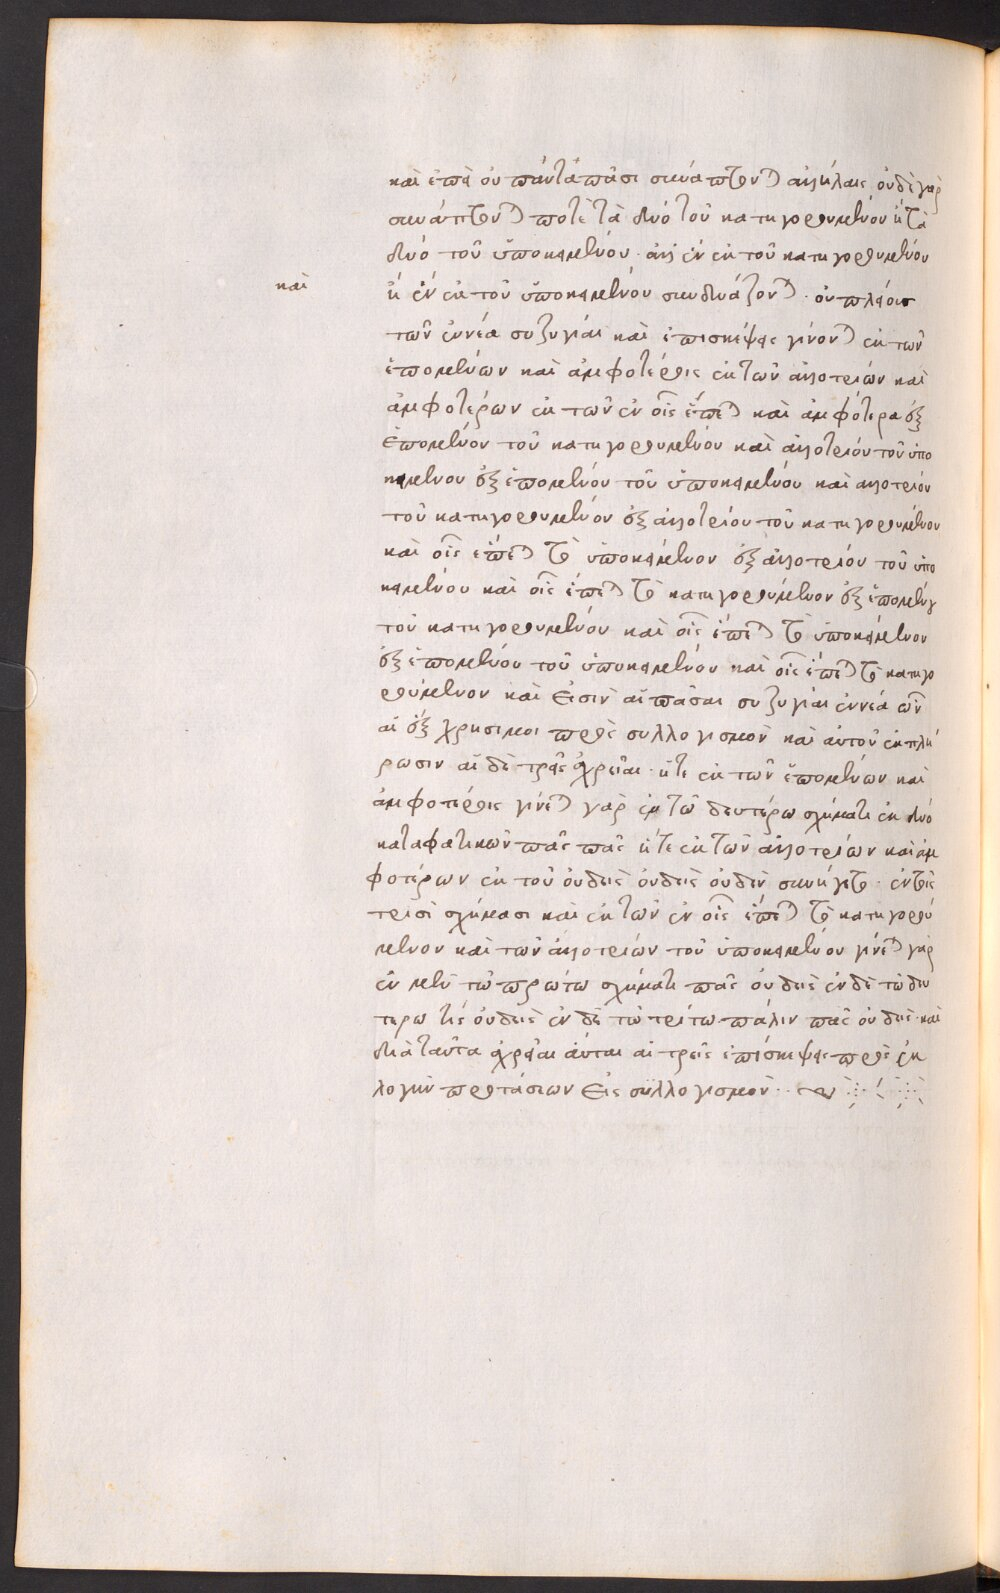 καὶ ἐπεὶ οὐ παντάπασι συνάπτονται ἀλλήλαις οὐδὲ γὰρ
συνάπτονται ποτὲ τὰ δύο τοῦ κατηγορουμένου ἢ τὰ
δύο τοῦ ὑποκειμένου · ἀλλ' ἓν ἐκ τοῦ κατηγορουμένου
καὶ
ἢ ἓν ἐκ τοῦ ὑποκειμένου συνδυάζονται · οὐ πλείους
τῶν ἐννέα συζυγίαι καὶ ἐπισκέψεις γίνονται ἐκ τῶν
ἑπομένων καὶ ἀμφοτέροις ἐκ τῶν ἀλλοτρίων καὶ
ἀμφοτέρων ἐκ τῶν ἐν οἷς ἕπεται καὶ ἀμφότερα ἐξ
ἑπομένου τοῦ κατηγορουμένου καὶ ἀλλοτρίου τοῦ ὑπο
κειμένου ἐξ ἑπομένου τοῦ ὑποκειμένου καὶ ἀλλοτρίου
τοῦ κατηγορουμένου ἐξ ἀλλοτρίου τοῦ κατηγορουμένου
καὶ οἷς ἕπεται τὸ ὑποκείμενον ἐξ ἀλλοτρίου τοῦ ὑπο
κειμένου καὶ οἷς ἕπεται τὸ κατηγορούμενον ἐξ ἑπομένου
τοῦ κατηγορουμένου καὶ οἷς ἕπεται τὸ ὑποκείμενον
ἐξ ἑπομένου τοῦ ὑποκειμένου καὶ οἷς ἕπεται τὸ κατηγο
ρούμενον καὶ εἰσὶν αἱ πᾶσαι συζυγίαι ἐννέα ὧν
αἱ ἓξ χρήσιμοι πρὸς συλλογισμὸν καὶ αὐτοῦ ἐκπλή
ρωσιν αἱ δὲ τρεῖς ἀχρεῖαι · ἥτε ἐκ τῶν ἑπομένων καὶ
ἀμφοτέροις γίνεται γὰρ ἐν τῷ δευτέρω σχήματι ἐκ δύο
καταφατικῶν πᾶς πᾶς ἥτε ἐκ τῶν ἀλλοτρίων καὶ ἀμ
φοτέρων ἐκ τοῦ οὐδεὶς οὐδεὶς οὐδὲν συνήγετο · ἐν τοῖς
τρισὶ σχήμασι καὶ ἐκ τῶν ἐν οἷς ἕπεται τὸ κατηγορού
μενον καὶ τῶν ἀλλοτρίων τοῦ ὑποκειμένου γίνεται γὰρ
ἐν μὲν τῷ πρώτω σχήματι πᾶς οὐδεὶς ἐν δὲ τῷ δευ
τέρω τὶς οὐδεὶς ἐν δὲ τῷ τρίτω πάλιν πᾶς οὐδεὶς · καὶ
διὰ ταῦτα ἀχρεῖαι αὗται αἱ τρεῖς ἐπισκέψεις πρὸς ἐκ
λογὴν προτάσεων εἰς συλλογισμόν ··